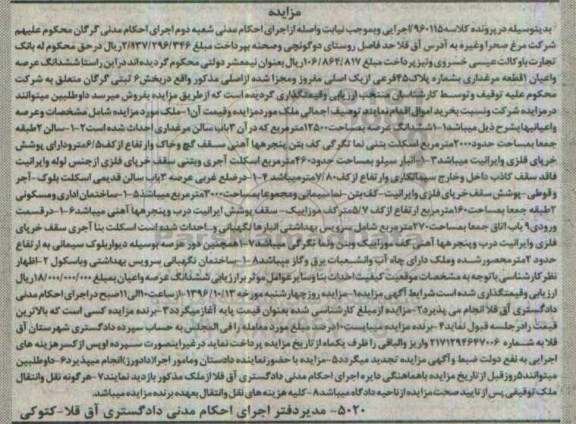 مزایده
بدینوسیله در پرونده کلاسه ۹۶۰۱۱۵ اجرایی وبموجب نیابت واصله از اجرای احکام مدنی شعبه دوم اجرای احکام مدنی گرگان محکوم علیهم
شرکت مرغ صحرا وغیره به آدرس آق قلا حد فاصل روستای دوگونچی وصحنه بپرداخت مبلغ ۲/۸۳۷/۲۹۶/۳۴۶ ریال در حق محکوم له بانک
تجارت با وکالت عیسی خسروی ونیز پرداخت مبلغ ۱۰۶/۸۶۴/۸۱۷ ریال بعنوان نیمعشر دولتی محکوم گردیده اند در این راستا ششدانگ عرصه
واعیان ۱ قطعه مرغداری بشماره پلاک ۴۵ فرعی از یک اصلی مفروز ومجزا شده از اصلی مذکور واقع در بخش ۶ ثبتی گرگان متعلق به شرکت
محکوم علیه توقیف و توسط کارشناسان منتخب ارزیابی وقیمتگذاری گردیده است که از طریق مزایده بفروش میرسد داوطلبین میتوانند
در مزایده شرکت ونسبت بخرید اموال اقدام نمایند توصیف اجمالی ملک مورد مزایده وقیمت آن ۱- ملک مورد مزایده شامل مشخصات وعرصه
واعیانیهای شرح ذیل میباشد ۱-۱ ششدانگ عرصه بمساحت ۲۵۰۰۰ مترمربع که در آن ۳ باب سالن مرغداری احداث شده است ۲-۱- سالن ۲ طبقه
جمعا بمساحت حدود ۲۰۰۰ مترمربع اسکلت بتنی نما تگرگی کف بتن پنجرهها آهنی سقف گچ وخاک وارتفاع از کف ۶/۵ متر ودارای پوشش
خرپای فلزی وایرانیت میباشد ۳-۱ انبار سیلو بمساحت حدود ۴۶۰ مترمربع اسکلت آجری وبتنی سقف خرپای فلزی از جنس لوله وایرانیت
فاقد سقف کاذب داخل وخارج سیمانکاری وارتفاع از کف ۷/۸۰ متر میباشد ۴-۱- در ضلع غربی عرصه ۳ باب سالن قدیمی اسکلت بلوک-آجر
و قوطی- پوشش سقف خرپای فلزی وایرانیت- کف بتن- نما سیمانی ومجموعا بمساحت ۳۰۰۰ مترمربع میباشد ۵-۱- ساختمان اداری ومسکونی
۲ طبقه جمعا بمساحت ۱۶۰ مترمربع ارتفاع از کف ۵/۷ متر کف موزاییک- سقف پوشش ایرانیت درب وپنجره ها آهنی میباشد ۶-۱- در قسمت
ورودی ۹ باب اتاق جمعا بمساحت ۲۷۰ مترمربع شامل سرویس بهداشتی انبارها نگهبانی و احداث شده است اسکلت بنا آجری سقف خرپای
فلزی وایرانیت درب وپنجرهها آهنی کف موزاییک وبتن ونما تگرگی میباشد ۷-۱ همچنین دور عرصه بوسیله دیوار بلوک سیمانی به ارتفاع
حدود ۲ متر محصور شده وملک دارای چاه آب وانشعبات برق وگاز میباشد ۸-۱- ساختمان نگهبانی سرویس بهداشتی وباسکول ۲- اظهار
نظر کارشناسی با توجه به مشخصات موقعیت کیفیت احداث بنا وسایر عوامل موثر بر ارزیابی ششدانگ عرصه واعیان بمبلغ ۱۸/۰۰۰/۰۰۰/۰۰۰ ریال
ارزیابی وقیمتگذاری شده است شرایط آگهی مزایده ۱- مزایده روز چهارشنبه مورخه ۱۳۹۶/۱۰/۱۳ از ساعت ۱۰ الی ۱۱ صبح در اجرای احکام مدنی
دادگستری آق قلا انجام می پذیرد ۲- مزایده از مبلغ کارشناسی شده بعنوان قیمت پایه آغاز میگردد ۳- برنده مزایده کسی است که بالاترین
قیمت را در جلسه قبول نماید ۴- برنده مزایده میبایست ۱۰ درصد مبلغ مورد معامله را فی المجلس به حساب سپرده دادگستری شهرستان آق
قلا به شماره ۲۱۷۱۲۹۴۶۴۷۰۰۶ واریز والباقی را ظرف یکماه از تاریخ مزایده پرداخت نماید در غیر اینصورت سپرده اوپس از کسر هزینه های
اجرایی به نفع دولت ضبط و آگهی مزایده تجدید میگردد ۵- مزایده با حضور نماینده دادستان ومامور اجرا (دادورز) انجام میپذیرد ۶- داوطلبین
میتوانند ۵ روز قبل از تاریخ مزایده با هماهنگی دایره اجرای احکام مدنی دادگستری آق قلا از ملک مذکور بازدید نمایند ۷- هرگونه نقل وانتقال
ملک توقیفی پس از تایید صحت مزایده از ناحیه دادگاه میباشد ۸- کلیه هزینه های نقل وانتقال بعهده برنده مزایده میباشد.
۵۰۲۰- مدیر دفتر اجرای احکام مدنی دادگستری آق قلا- کتوکی